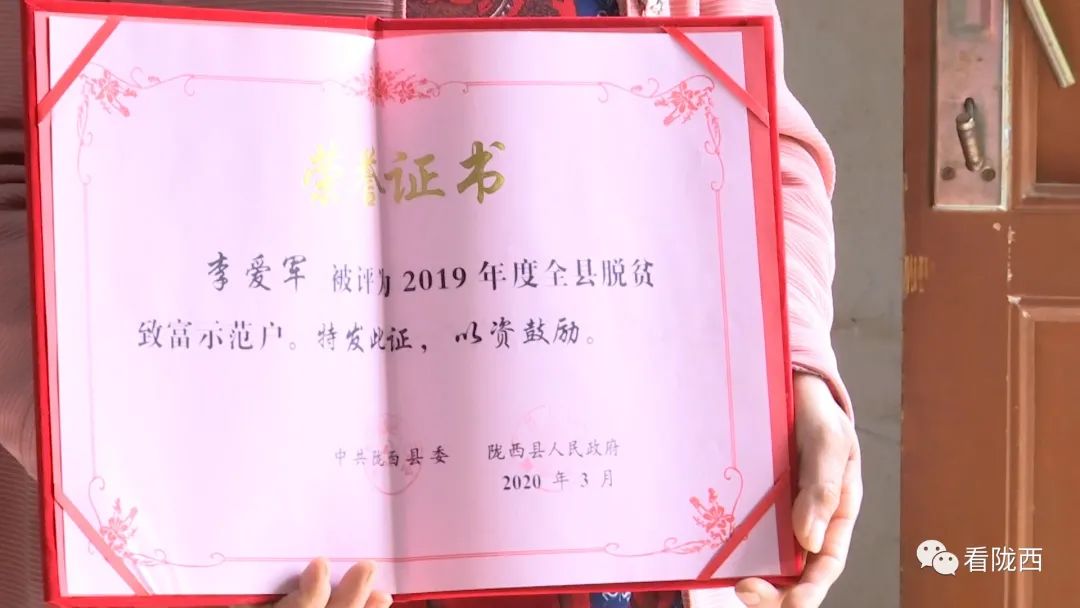 荣誉证书
李爱军 被评为2019年度全县脱贫
致富示范户。特发此证，以资鼓励。
中共陇西县委 陇西县人民政府
2020 年 3 月
看陇西